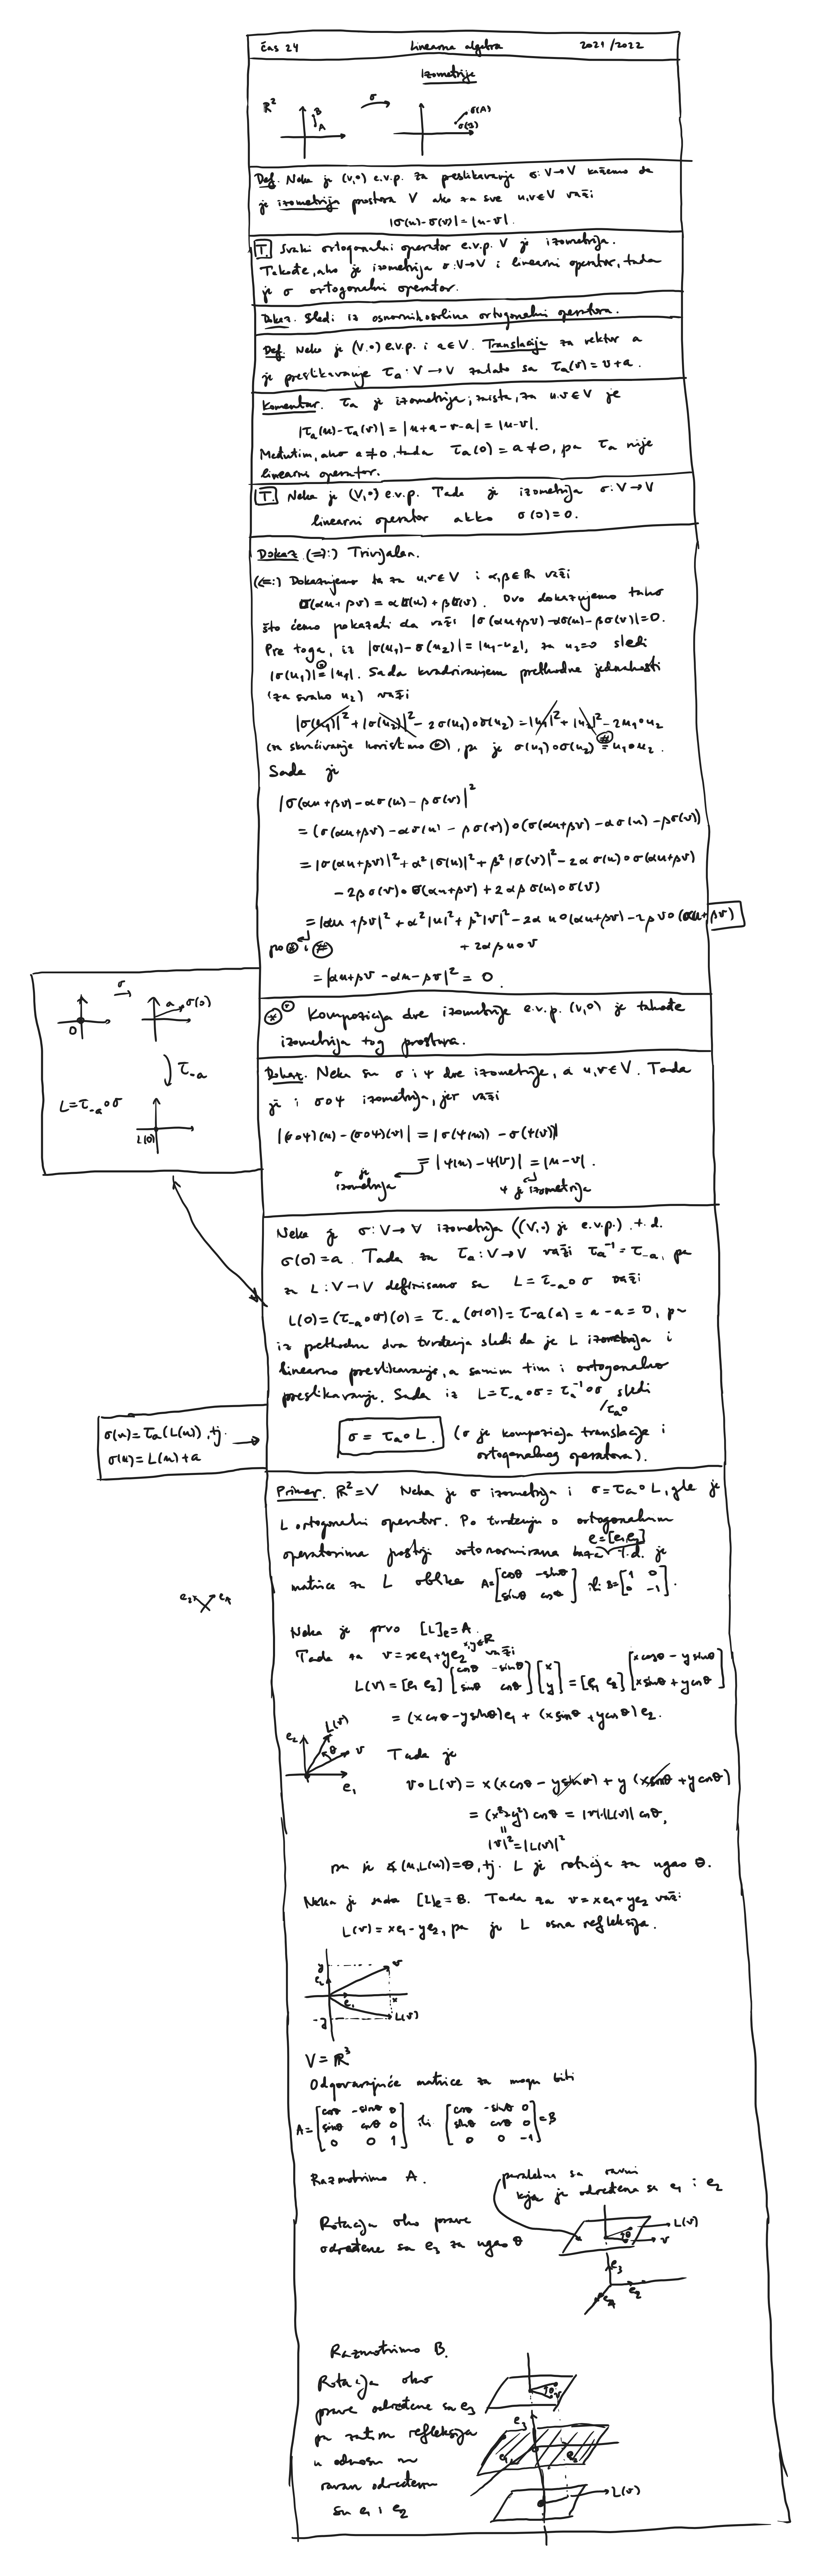 čas 24 Linearna algebra 2021/2022
Izometrije
R² B A σ σ(A) σ(B)
Def. Neka je (V,∘) e.v.p. Za preslikavanje σ: V→V kažemo da
je izometrija prostora V ako za sve u,v∈V važi
|σ(u)-σ(v)| = |u-v|.
T. Svaki ortogonalni operator e.v.p. V je izometrija.
Takođe, ako je izometrija σ: V→V i linearni operator, tada
je σ ortogonalni operator.
Dokaz. Sledi iz osnovnih osobina ortogonalni operatora.
Def. Neka je (V,∘) e.v.p. i a∈V. Translacija za vektor a
je preslikavanje τₐ: V→V zadato sa τₐ(v) = v+a.
Komentar. τₐ je izometrija; zaista, za u,v∈V je
|τₐ(u)-τₐ(v)| = |u+a-v-a| = |u-v|.
Međutim, ako a≠0, tada τₐ(0) = a ≠ 0, pa τₐ nije
linearni operator.
T. Neka je (V,∘) e.v.p. Tada je izometrija σ: V→V
linearni operator akko σ(0)=0.
Dokaz (⇒:) Trivijalan.
(⇐:) Dokazujemo da za u,v∈V i α,β∈R važi
σ(αu+βv) = ασ(u)+βσ(v). Ovo dokazujemo tako
što ćemo pokazati da važi |σ(αu+βv)-ασ(u)-βσ(v)|=0.
Pre toga, iz |σ(u₁)-σ(u₂)| = |u₁-u₂|, za u₂=0 sledi
|σ(u₁)| = |u₁|. Sada kvadriranjem prethodne jednakosti
(za svako u₂) važi
|σ(u₁)|²+|σ(u₂)|²-2σ(u₁)∘σ(u₂) = |u₁|²+|u₂|²-2u₁∘u₂
(za skraćivanje koristimo ⊛), pa je σ(u₁)∘σ(u₂) = u₁∘u₂.
Sada je
|σ(αu+βv)-ασ(u)-βσ(v)|²
= (σ(αu+βv)-ασ(u)-βσ(v))∘(σ(αu+βv)-ασ(u)-βσ(v))
= |σ(αu+βv)|²+α²|σ(u)|²+β²|σ(v)|²-2ασ(u)∘σ(αu+βv)
-2βσ(v)∘σ(αu+βv)+2αβσ(u)∘σ(v)
= |αu+βv|²+α²|u|²+β²|v|²-2αu∘(αu+βv)-2βv∘(αu+βv)
po ⊛ i # +2αβu∘v
= |αu+βv-αu-βv|² = 0.
σ
0 a σ(0)
τ₋ₐ
L=τ₋ₐ∘σ
L(0)
Kompozicija dve izometrije e.v.p. (V,∘) je takođe
izometrija tog prostora.
Dokaz. Neka su σ i ψ dve izometrije, a u,v∈V. Tada
je i σ∘ψ izometrija, jer važi
|(σ∘ψ)(u)-(σ∘ψ)(v)| = |σ(ψ(u))-σ(ψ(v))|
= |ψ(u)-ψ(v)| = |u-v|.
σ je izometrija ψ je izometrija
Neka je σ: V→V izometrija ((V,∘) je e.v.p.) t.d.
σ(0)=a. Tada za τₐ: V→V važi τₐ⁻¹=τ₋ₐ, pa
za L: V→V definisano sa L=τ₋ₐ∘σ važi
L(0)=(τ₋ₐ∘σ)(0) = τ₋ₐ(σ(0)) = τ₋ₐ(a) = a-a=0, pa
iz prethodna dva tvrđenja sledi da je L izometrija i
linearno preslikavanje, a samim tim i ortogonalno
preslikavanje. Sada iz L=τ₋ₐ∘σ=τₐ⁻¹∘σ sledi
/τₐ∘
σ = τₐ∘L. (σ je kompozicija translacije i
ortogonalnog operatora).
σ(u)=τₐ(L(u)), tj.
σ(u)=L(u)+a
Primer. R²=V Neka je σ izometrija i σ=τₐ∘L, gde je
L ortogonalni operator. Po tvrđenju o ortogonalnim
e=[e₁ e₂]
operatorima postoji ortonormirana baza t.d. je
matrica za L oblika A=[cosθ -sinθ; sinθ cosθ] ili B=[1 0; 0 -1].
e₂ e₁
Neka je prvo [L]ₑ=A.
Tada za v=xe₁+ye₂ x,y∈R važi
L(v)=[e₁ e₂][cosθ -sinθ; sinθ cosθ][x; y] = [e₁ e₂][xcosθ-ysinθ; xsinθ+ycosθ]
= (xcosθ-ysinθ)e₁ + (xsinθ+ycosθ)e₂.
e₂ L(v) θ v e₁
Tada je
v∘L(v) = x(xcosθ-ysinθ)+y(xsinθ+ycosθ)
= (x²+y²)cosθ = |v||L(v)|cosθ,
|v|²=|L(v)|²
pa je ∡(u,L(u))=θ, tj. L je rotacija za ugao θ.
Neka je sada [L]ₑ=B. Tada za v=xe₁+ye₂ važi
L(v)=xe₁-ye₂, pa je L osna refleksija.
y v
e₂
e₁ x
-y L(v)
V=R³
Odgovarajuće matrice za mogu biti
A=[cosθ -sinθ 0; sinθ cosθ 0; 0 0 1] ili [cosθ -sinθ 0; sinθ cosθ 0; 0 0 -1]=B
Razmotrimo A.
paralelna sa ravni
koja je određena sa e₁ i e₂
Rotacija oko prave
određene sa e₃ za ugao θ
L(v) θ v
e₃
e₁ e₂
Razmotrimo B.
Rotacija oko
prave određene sa e₃
pa zatim refleksija
u odnosu na
ravan određenu
sa e₁ i e₂
θ v
e₃
e₁ e₂
L(v)